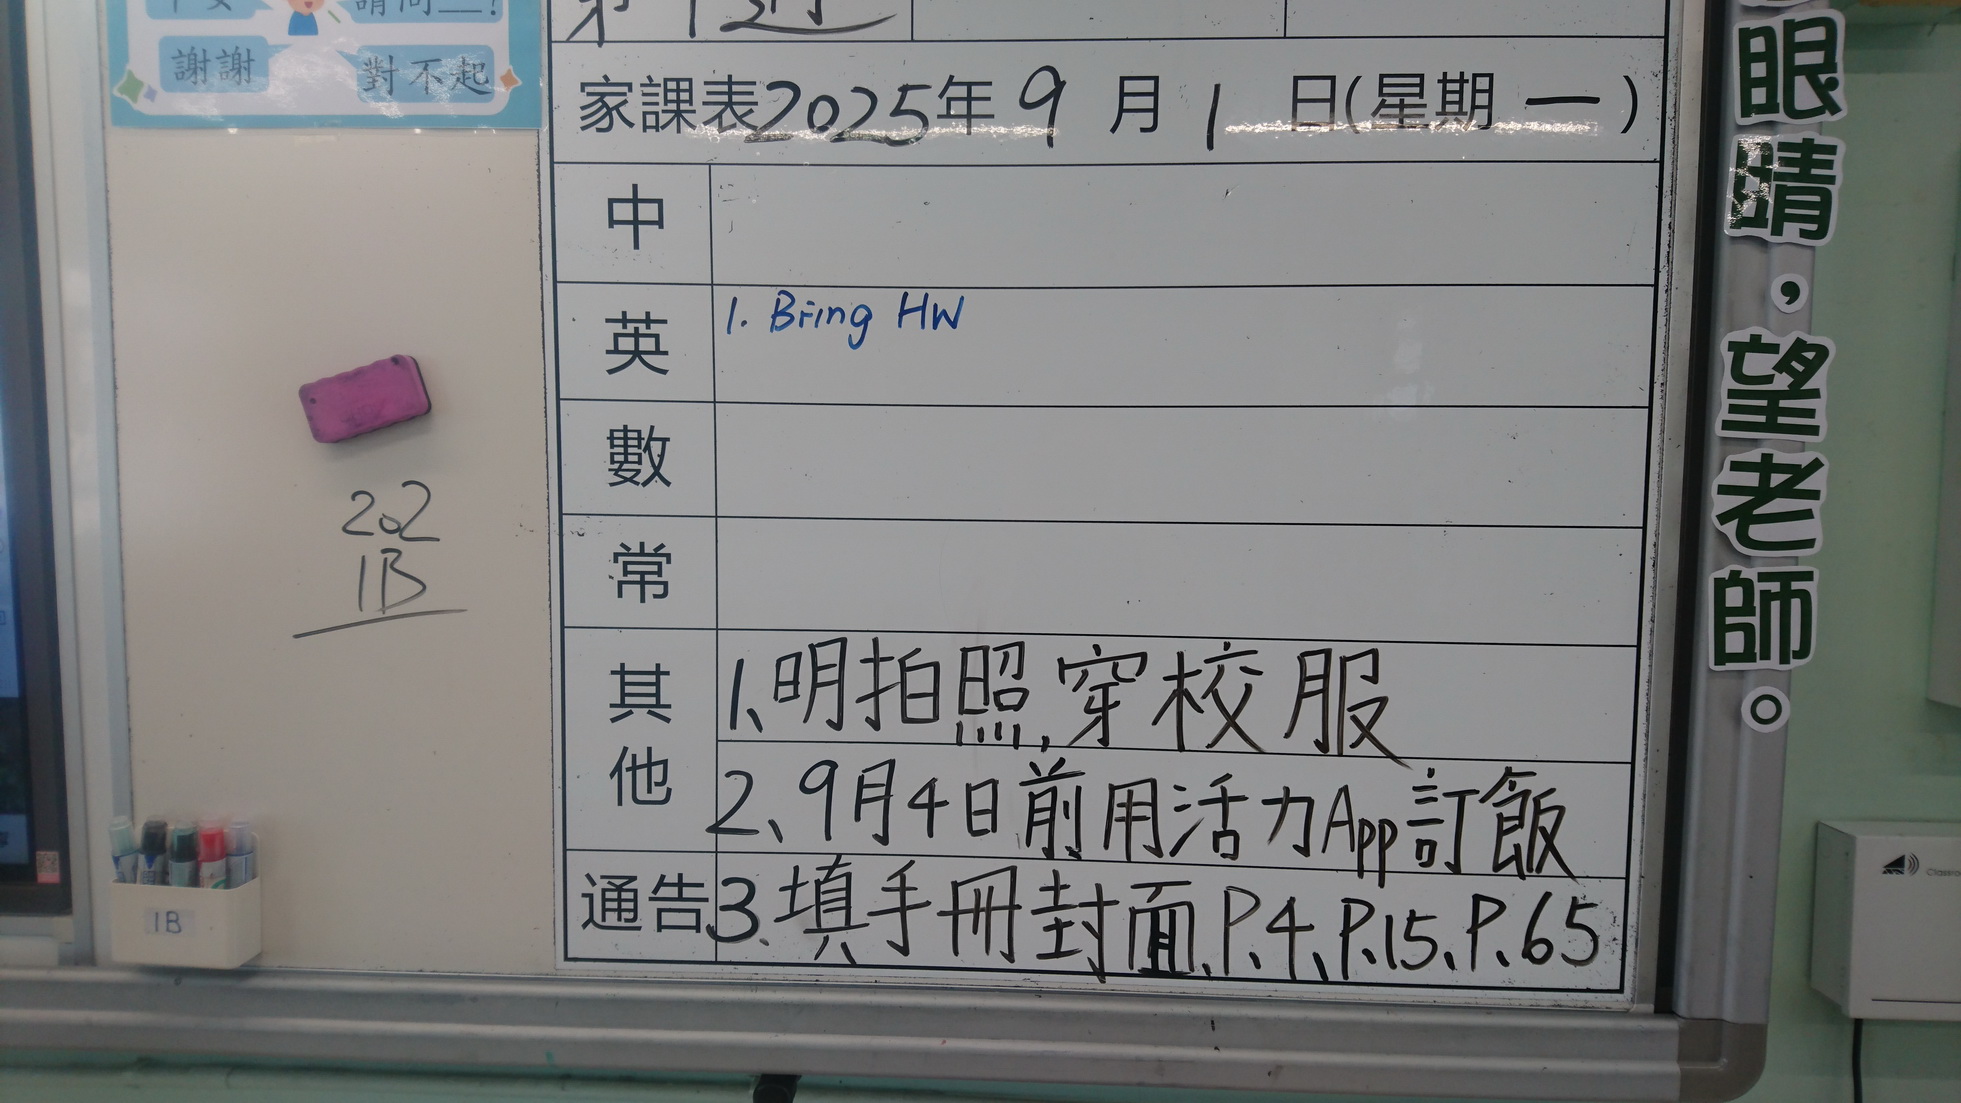 請問__?
謝謝
對不起
家課表2025年9月1日(星期一)
中
英
1. Bring HW
數
常
其他
1、明拍照,穿校服
2、9月4日前用活力App訂飯
通告
3、填手冊封面、P.4、P.15、P.65
202
1B
1B
眼睛,望老師。